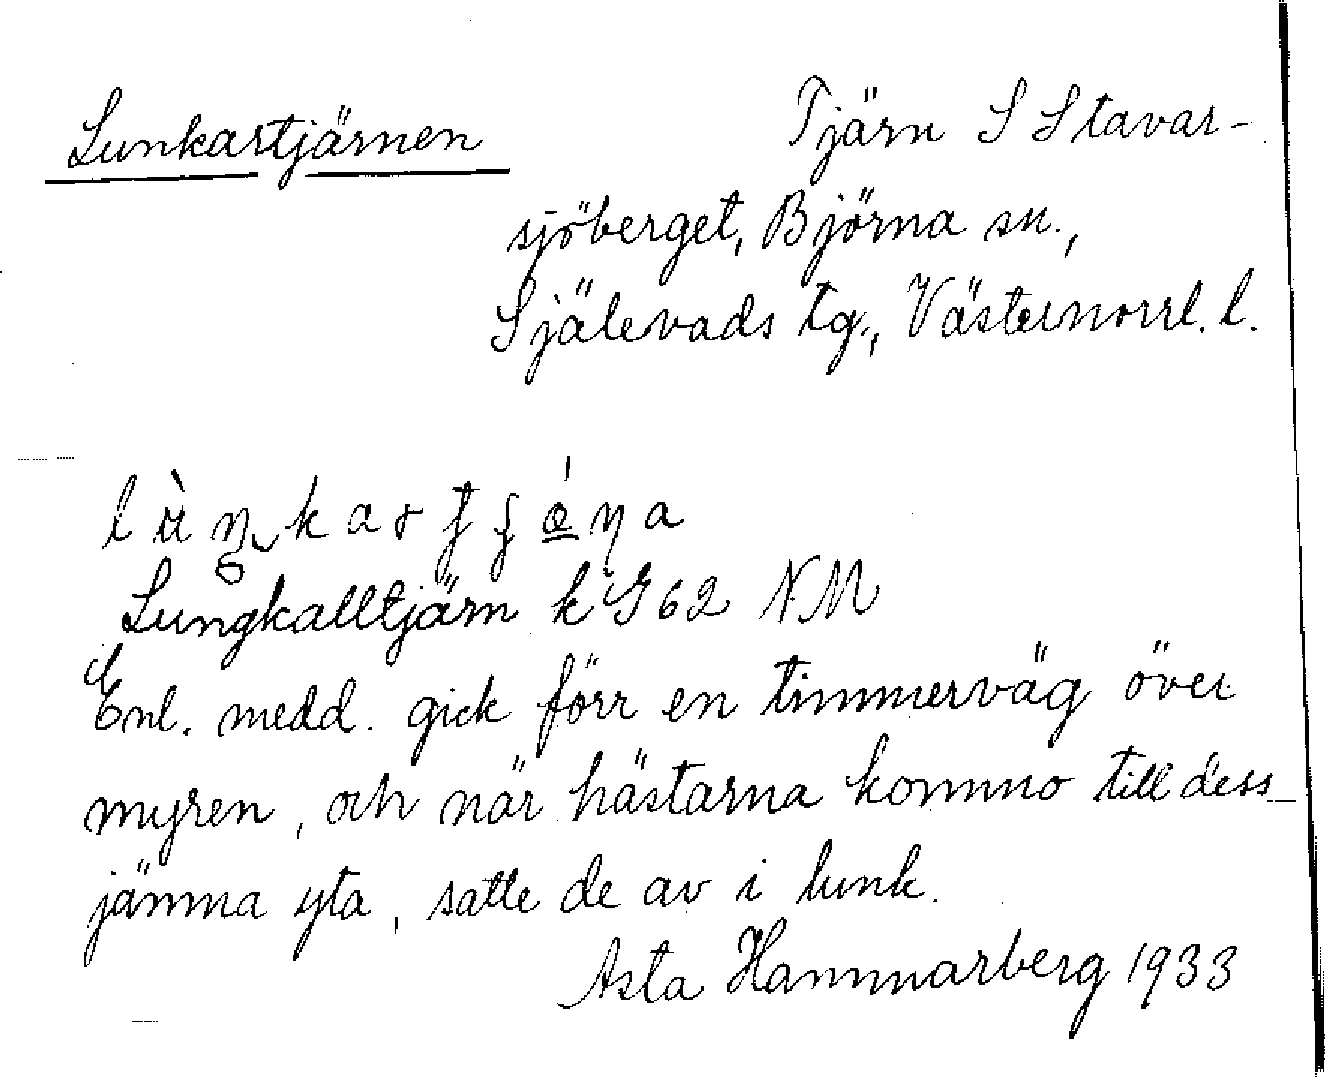 Lunkartjärnen
Tjärn S Stavar-
sjöberget, Björna sn.,
Själevads tg., Västernorrl. l.
Lungkalltjärn k G62 NM
Enl. medd. gick förr en timmerväg över
myren, och när hästarna kommo till dess
jämna yta, satte de av i lunk.
Asta Hammarberg 1933